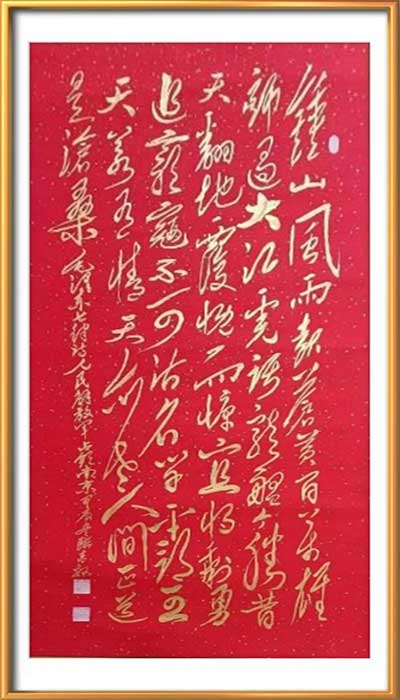 鐘山風雨起蒼黄百万雄
師過大江虎踞龍盤今勝昔
天翻地覆慨而慷宜将剩勇
追窮寇不可沽名学霸王
天若有情天亦老人間正道
是滄桑 毛澤东七律诗人民解放军占領南京